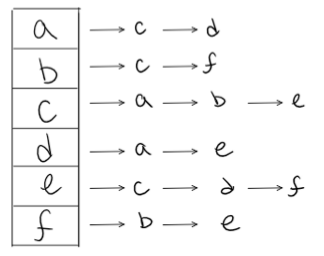 a → c → d
b → c → f
c → a → b → e
d → a → e
e → c → d → f
f → b → e